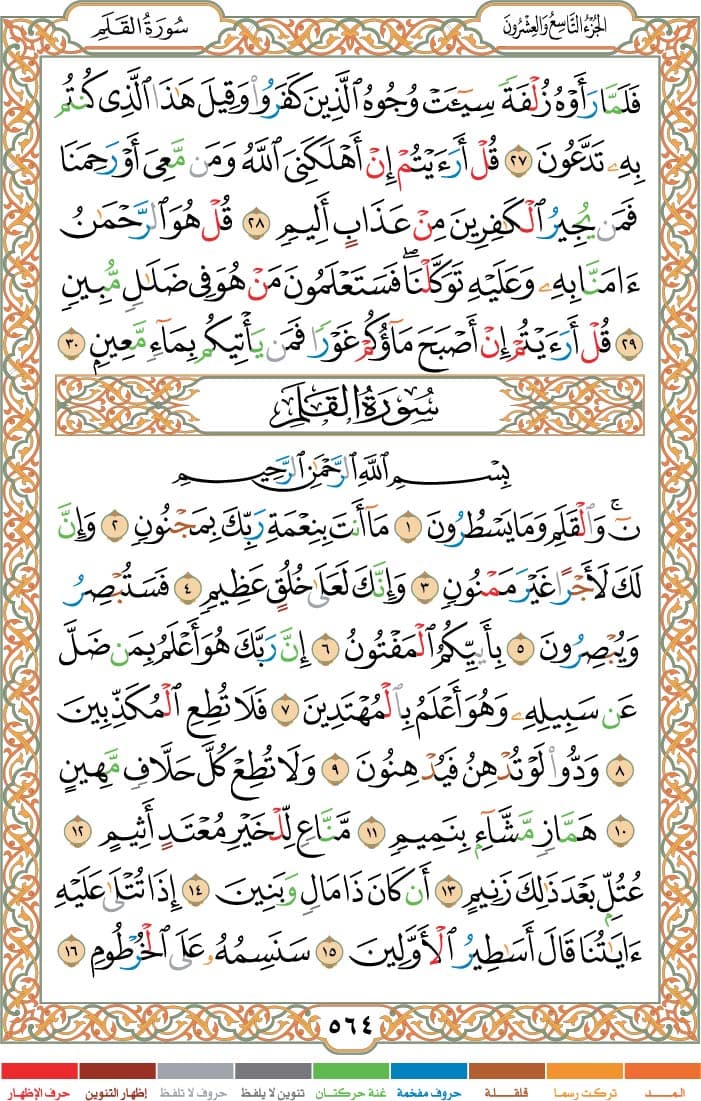 الجزء التاسع والعشرون
سورة القلم
فَلَمَّا رَأَوْهُ زُلْفَةً سِيٓـَٔتْ وُجُوهُ ٱلَّذِينَ كَفَرُوا۟ وَقِيلَ هَٰذَا ٱلَّذِى كُنتُم
بِهِۦ تَدَّعُونَ ٢٧ قُلْ أَرَءَيْتُمْ إِنْ أَهْلَكَنِىَ ٱللَّهُ وَمَن مَّعِىَ أَوْ رَحِمَنَا
فَمَن يُجِيرُ ٱلْكَٰفِرِينَ مِنْ عَذَابٍ أَلِيمٍ ٢٨ قُلْ هُوَ ٱلرَّحْمَٰنُ
ءَامَنَّا بِهِۦ وَعَلَيْهِ تَوَكَّلْنَا ۖ فَسَتَعْلَمُونَ مَنْ هُوَ فِى ضَلَٰلٍ مُّبِينٍ
٢٩ قُلْ أَرَءَيْتُمْ إِنْ أَصْبَحَ مَآؤُكُمْ غَوْرًا فَمَن يَأْتِيكُم بِمَآءٍ مَّعِينٍۭ ٣٠
سُورَةُ القَلَمِ
بِسْمِ ٱللَّهِ ٱلرَّحْمَٰنِ ٱلرَّحِيمِ
نٓ ۚ وَٱلْقَلَمِ وَمَا يَسْطُرُونَ ١ مَآ أَنتَ بِنِعْمَةِ رَبِّكَ بِمَجْنُونٍ ٢ وَإِنَّ
لَكَ لَأَجْرًا غَيْرَ مَمْنُونٍ ٣ وَإِنَّكَ لَعَلَىٰ خُلُقٍ عَظِيمٍ ٤ فَسَتُبْصِرُ
وَيُبْصِرُونَ ٥ بِأَييِّكُمُ ٱلْمَفْتُونُ ٦ إِنَّ رَبَّكَ هُوَ أَعْلَمُ بِمَن ضَلَّ
عَن سَبِيلِهِۦ وَهُوَ أَعْلَمُ بِٱلْمُهْتَدِينَ ٧ فَلَا تُطِعِ ٱلْمُكَذِّبِينَ
٨ وَدُّوا۟ لَوْ تُدْهِنُ فَيُدْهِنُونَ ٩ وَلَا تُطِعْ كُلَّ حَلَّافٍ مَّهِينٍ
١٠ هَمَّازٍ مَّشَّآءٍۭ بِنَمِيمٍ ١١ مَّنَّاعٍ لِّلْخَيْرِ مُعْتَدٍ أَثِيمٍ ١٢
عُتُلٍّۭ بَعْدَ ذَٰلِكَ زَنِيمٍ ١٣ أَن كَانَ ذَا مَالٍ وَبَنِينَ ١٤ إِذَا تُتْلَىٰ عَلَيْهِ
ءَايَٰتُنَا قَالَ أَسَٰطِيرُ ٱلْأَوَّلِينَ ١٥ سَنَسِمُهُۥ عَلَى ٱلْخُرْطُومِ ١٦
٥٦٤
المـــد
تركت رسما
قلقـلة
حروف مفخمة
غنة حركتان
تنوين لا يلفظ
حروف لا تلفظ
إظهار التنوين
حرف الإظهار